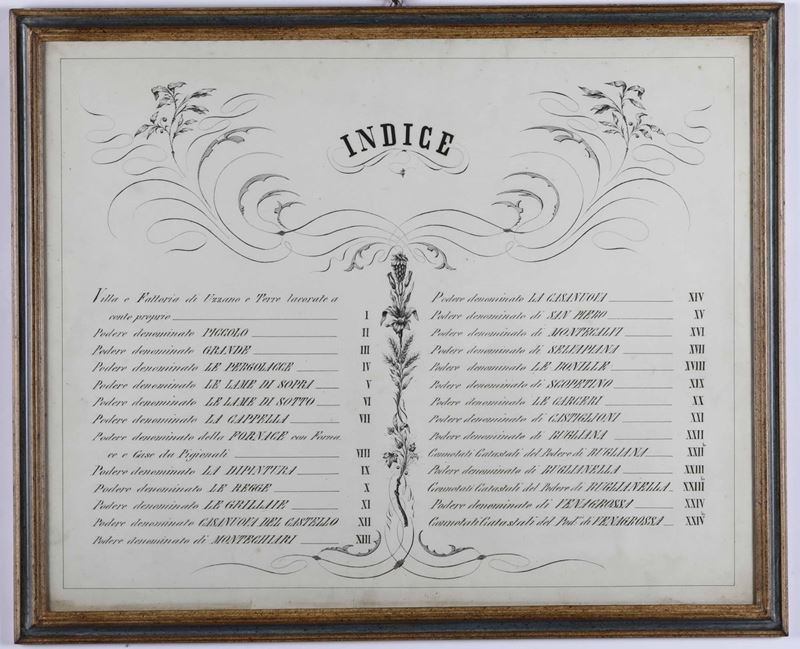 INDICE
Villa e Fattoria di Uzzano e Terre lavorate a
conto proprio I
Podere denominato PICCOLO II
Podere denominato GRANDE III
Podere denominato LE PERGOLACCE IV
Podere denominato LE LAME DI SOPRA V
Podere denominato LE LAME DI SOTTO VI
Podere denominato LA CAPPELLA VII
Podere denominato della FORNACE con Forna
ce e Case da Pigionali VIII
Podere denominato LA DIPINTURA IX
Podere denominato LE REGGE X
Podere denominato LE GRILLAIE XI
Podere denominato CASANUOVA DEL CASTELLO XII
Podere denominato di MONTECHIARI XIII
Podere denominato LA CASANUOVA XIV
Podere denominato di SAN PIERO XV
Podere denominato di XVI
Podere denominato di SELVAPIANA XVII
Podere denominato LE BONILLE XVIII
Podere denominato di SCOPETINO XIX
Podere denominato LE CARCERI XX
Podere denominato di CASTIGLIONI XXI
Podere denominato di BUGLIANA XXII
Connotati Catastali del Podere di BUGLIANA XXII
Podere denominato di BUGLIANELLA XXIII
Connotati Catastali del Podere di BUGLIANELLA XXIII
Podere denominato di VENAGROSSA XXIV
Connotati Catastali del Pod.e di VENAGROSSA XXIV